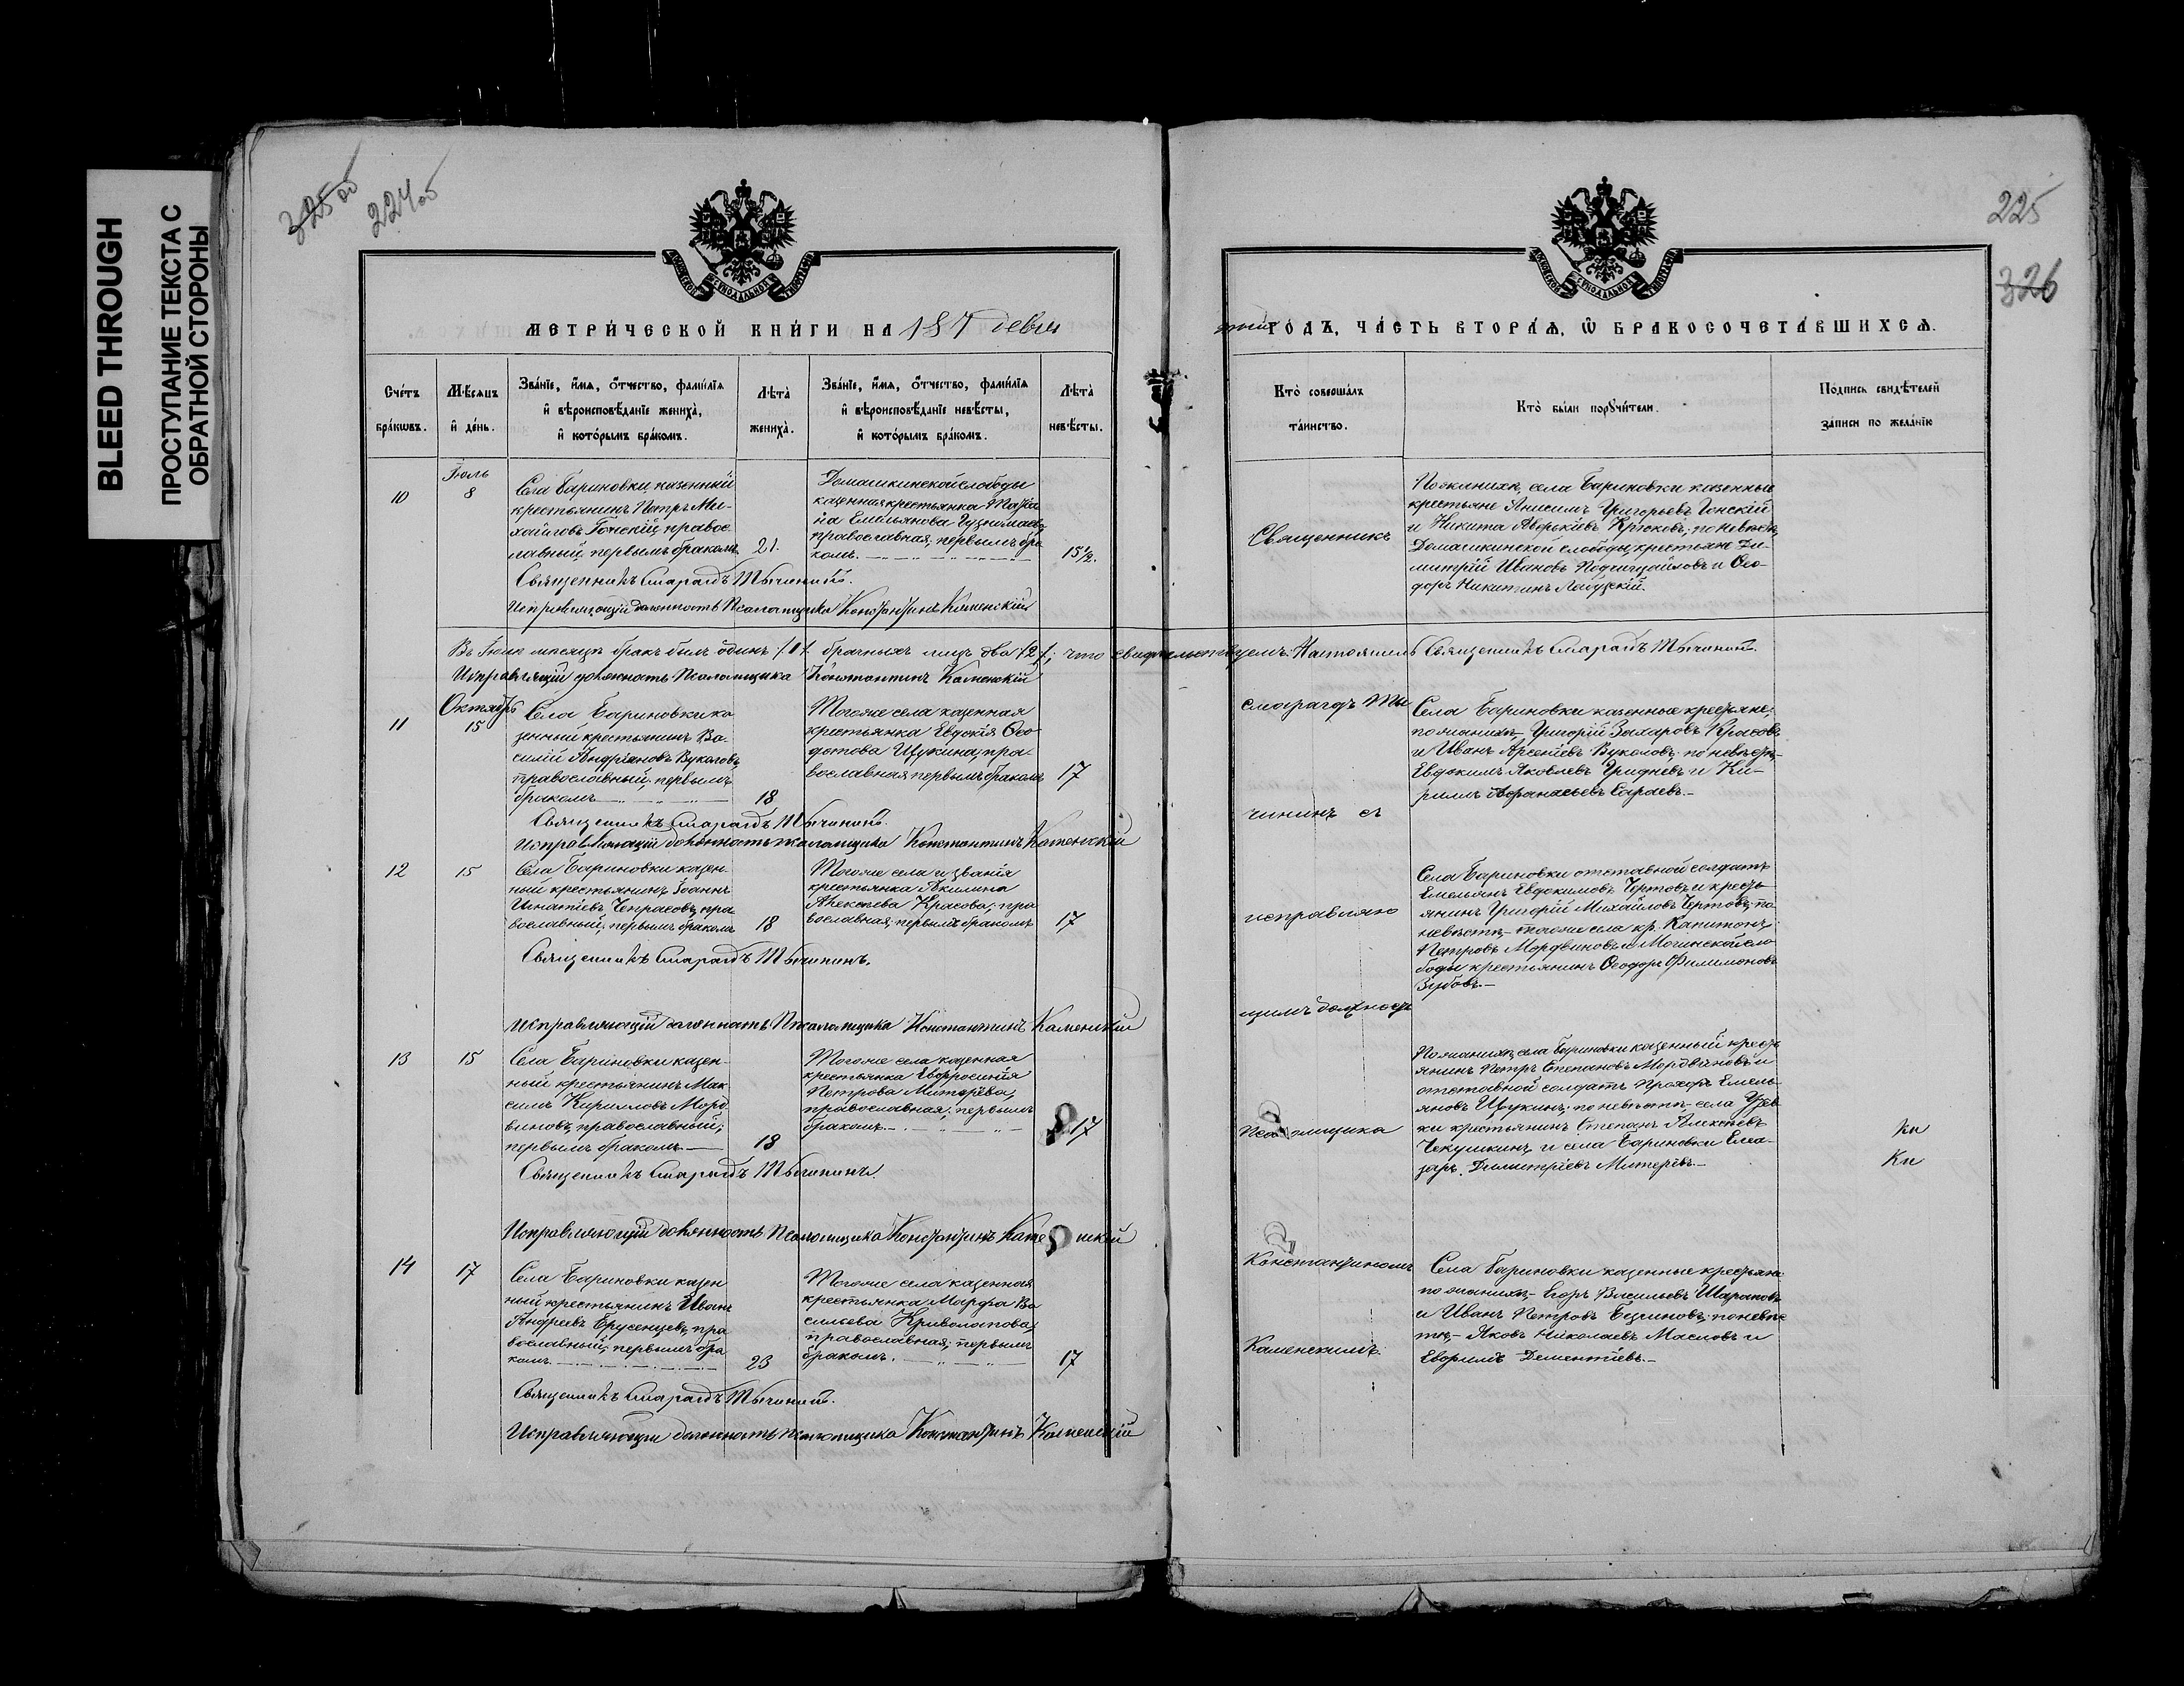 BLEED THROUGH
ПРОСТУПАНИЕ ТЕКСТА С
ОБРАТНОЙ СТОРОНЫ
325 об
224 об
МЕТРИ́ЧЕСКОЙ КНИ́ГИ НА 187 девя
Сче́тъ
бра́кωвъ.
Мѣ́сяцъ
и҆ де́нь.
Зва́нїе, и҆́мя, ѻ҆́тчество, фами́лїя
и҆ вѣроисповѣ́данїе жениха̀,
и҆ кото́рымъ бра́комъ.
Лѣта̀
жениха̀.
Зва́нїе, и҆́мя, ѻ҆́тчество, фами́лїя
и҆ вѣроисповѣ́данїе невѣ́сты,
и҆ кото́рымъ бра́комъ.
Лѣта̀
невѣ́сты.
10
Іюль
8
Села Бариновки казенный
крестьянинъ Петръ Ми-
хайловъ Гонскій, правос
лавный, первымъ бракомъ
21.
Домашкинской слободы
казенная крестьянка
на Емельянова
православная, первымъ бра
комъ.
15½.
Священникъ Смарагдъ Тычининъ.
Исправляющій должность Псаломщика Константинъ Каменскій
Въ Іюлѣ мѣсяцѣ бракъ былъ одинъ /1/. брачныхъ лицъ два /2/; что свидѣтельствуемъ: Священникъ Смарагдъ Тычининъ.
Исправляющій должность Псаломщика Константинъ Каменскій
11
Октябрь
15
Села Бариновки ка
зенный крестьянинъ Ва-
силій Андріановъ Вуколовъ,
православный; первымъ
бракомъ
18
Тогоже села казенная
крестьянка Евдокія Ѳео
дотова Щукина, пра-
вославная первымъ бракомъ
17
Священникъ Смарагдъ Тычининъ.
Исправляющій должность псаломщика Константинъ Каменскій
12
15
Села Бариновки казен-
ный крестьянинъ Іоаннъ
Игнатіевъ Чепрасовъ, пра
вославный; первымъ бракомъ
18
Тогоже села и званія
крестьянка Акилина
Алексѣева Красова; пра
вославная; первымъ бракомъ
17
Священникъ Смарагдъ Тычининъ.
Исправляющій должность Псаломщика Константинъ Каменскій
13
15
Села Бариновки казен-
ный крестьянинъ Мак
симъ Кирилловъ Морд
виновъ, православный;
первымъ бракомъ.
18
Тогоже села казенная
крестьянка Евфросинія
Петрова Митерёва,
православная; первымъ
бракомъ.
17
Священникъ Смарагдъ Тычининъ.
Исправляющій должность Псаломщика Константинъ Каменскій
14
17
Села Бариновки казен
ный крестьянинъ Иванъ
Андреевъ Брусенцевъ, пра
вославный; первымъ бра
комъ.
23
Тогоже села казенная
крестьянка Марфа Ва
сильева Криволапова,
православная, первымъ
бракомъ.
17
Священникъ Смарагдъ Тычининъ.
Исправляющій должность Псаломщика Константинъ Каменскій
225
326
тый ГО́ДЪ, ЧА́СТЬ ВТОРА́Я, Ѡ҆ БРАКОСОЧЕТА́ВШИХСЯ.
Кто̀ соверша́лъ
та́инство.
Кто̀ бы́ли порꙋчи́тели.
По́дпись свидѣ́телей
за́писи по жела́нїю
Священникъ
По женихѣ, села Бариновки казенные
крестьяне Анисимъ Григорьевъ Гонскій
и Никита Аверкіевъ; по невѣстѣ,
Домашкинской слободы, крестьяне Ди-
митрій Ивановъ и Ѳео-
доръ Никитинъ
Смарагдъ Ты
чининъ съ
исправляю
щимъ должность
Псаломщика
Константиномъ
Каменскимъ.
Села Бариновки казенные крестьяне;
по женихѣ – Григорій Захаровъ Красовъ
и Иванъ Арсеніевъ Вуколовъ; по невѣстѣ,-
Евдокимъ Яковлевъ Гридневъ и Ки-
рилъ Афанасьевъ Сараевъ.-
Села Бариновки отставной солдатъ
Емельянъ Евдокимовъ Чертовъ, и кресть
янинъ Григорій Михайловъ Чертовъ; по
невѣстѣ,- тогоже села кр. Капитонъ
Петровъ Мордвиновъ и Мочинской сло
боды крестьянинъ Ѳеодоръ Филимоновъ
Зубовъ.-
По женихѣ, села Бариновки казенный кресть
янинъ Петръ Степановъ Мордвиновъ и
отставной солдатъ Прохоръ Емель-
яновъ Щукинъ; по невѣстѣ – села
ки крестьянинъ Степанъ Алексѣевъ
Чекушкинъ, и села Бариновки Ела-
заръ Димитріевъ Митерёвъ.-
Села Бариновки казенные крестьяне
по женихѣ,- Егоръ Васильевъ Шараповъ
и Иванъ Петровъ; по невѣс
тѣ,- Яковъ Николаевъ Масловъ и
Ефримъ Дементіевъ.-